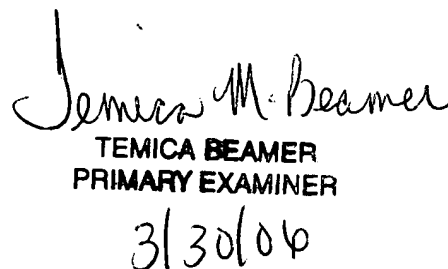 Temica M. Beamer
TEMICA BEAMER
PRIMARY EXAMINER
3/30/06